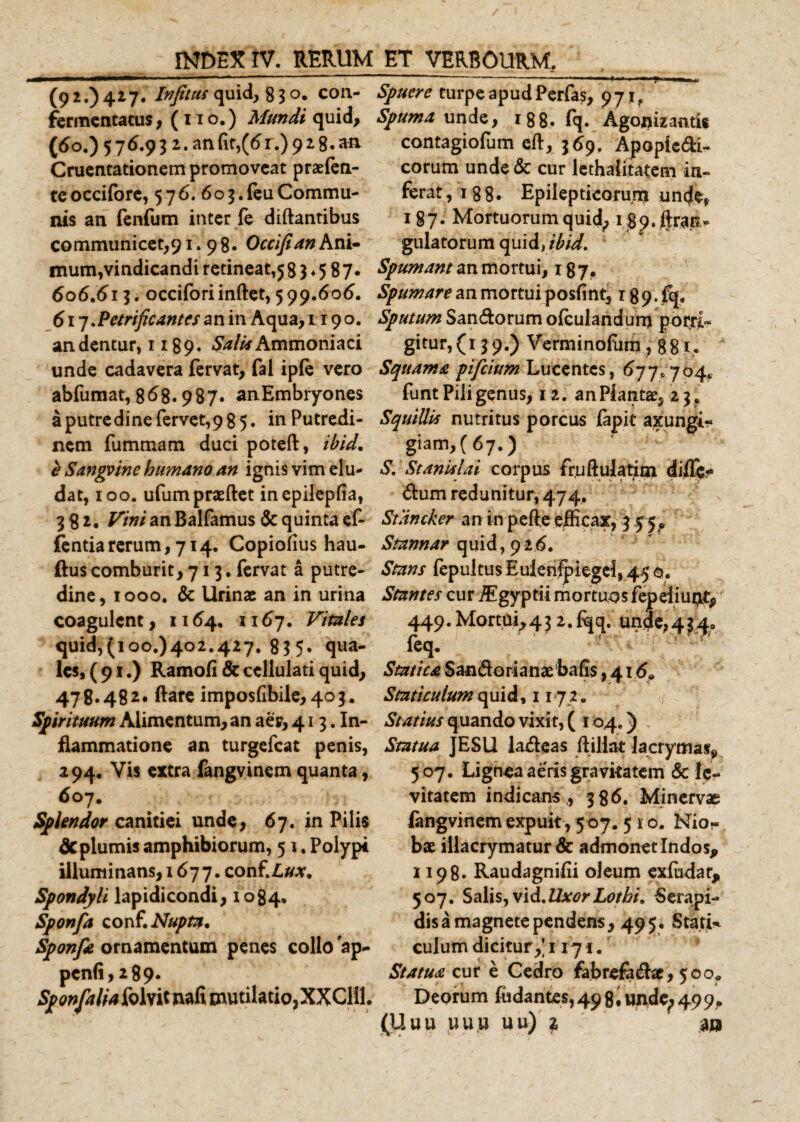 INDEX IV. RERUM ET VERBOURM.
(92.) 427. Insitus quid, 830. con-
fermentatus, (110.) Mundi quid,
(60.) 576.932. an sit,(61.) 928. an
Cruentationem promoveat præsen-
te occisore, 576. 603. seu Commu-
nis an sensum inter se distantibus
communicet, 91. 98. Occisi an Ani-
mum, vindicandi retineat, 583.587.
606.613. occisori instet, 599.606.
617. Petrificantes an in Aqua, 1190.
an dentur, 1189. Salis Ammoniaci
unde cadavera servat, sal ipse vero
absumat, 868. 987. an Embryones
à putredine servet, 985. in Putredi-
nem summam duci potest, ibid.
è Sangvine humano an ignis vim elu-
dat, 100. usum præstet in epilepsia,
382. Vini an Balsamus & quinta es-
sentia rerum, 714. Copiosius hau-
stus comburit, 713. servat à putre-
dine, 1000. & Urinæ an in urina
coagulent, 1164. 1167. Vitales
quid, (100.) 402.427. 835. qua-
les, (91.) Ramosi & cellulati quid,
478.482. stare impossibile, 403.
Spirituum Alimentum, an aër, 413. In-
flammatione an turgescat penis,
294. Vis extra sangvinem quanta,
607.
Splendor canitiei unde, 67. in Pilis
& plumis amphibiorum, 51. Polypi
illuminans, 1677. conf. Lux.
Spondyli lapidicondi, 1084.
Sponsa conf. Nupta.
Sponsæ ornamentum penes collo ap-
pensi, 289.
Sponsalia solvit nasi mutilatio, XXCIII.
Spuere turpe apud Persas, 971.
Spuma unde, 188. sq. Agonizantis
contagiosum est, 369. Apoplecti-
corum unde & cur lethalitatem in-
ferat, 188. Epilepticorum unde,
187. Mortuorum quid, 189. stran-
gulatorum quid, ibid.
Spumant an mortui, 187.
Spumare an mortui possint, 189. sq.
Sputum Sanctorum osculandum porri-
gitur, (139.) Verminosum, 881.
Squamæ piscium Lucentes, 677. 704.
sunt Pili genus, 12. an Plantæ, 23.
Squillis nutritus porcus sapit axungi-
giam, (67.)
S. Stanislai corpus frustulatim disse-
ctum redunitur, 474.
Stäncker an in peste efficax, 355.
Stannar quid, 926.
Stans sepultus Eulenspiegel, 450.
Stantes cur Ægyptii mortuos sepeliunt,
449. Mortui, 432. sqq. unde, 434.
seq.
Staticæ Sanctorianæ basis, 416.
Staticulum quid, 1172.
Statius quando vixit, (104.)
Statua JESU lacteas stillat lacrymas,
507. Lignea aëris gravitatem & le-
vitatem indicans, 386. Minervæ
sangvinem expuit, 507. 510. Nio-
bæ illacrymatur & admonet Indos,
1198. Raudagnisii oleum exsudat,
507. Salis, vid. Uxor Lothi. Serapi-
dis à magnete pendens, 495. Stati-
culum dicitur, 1171.
Statuæ cur è Cedro fabrefactæ, 500.
Deorum sudantes, 498. unde, 499.
(Uuu uuu uu) 2 an